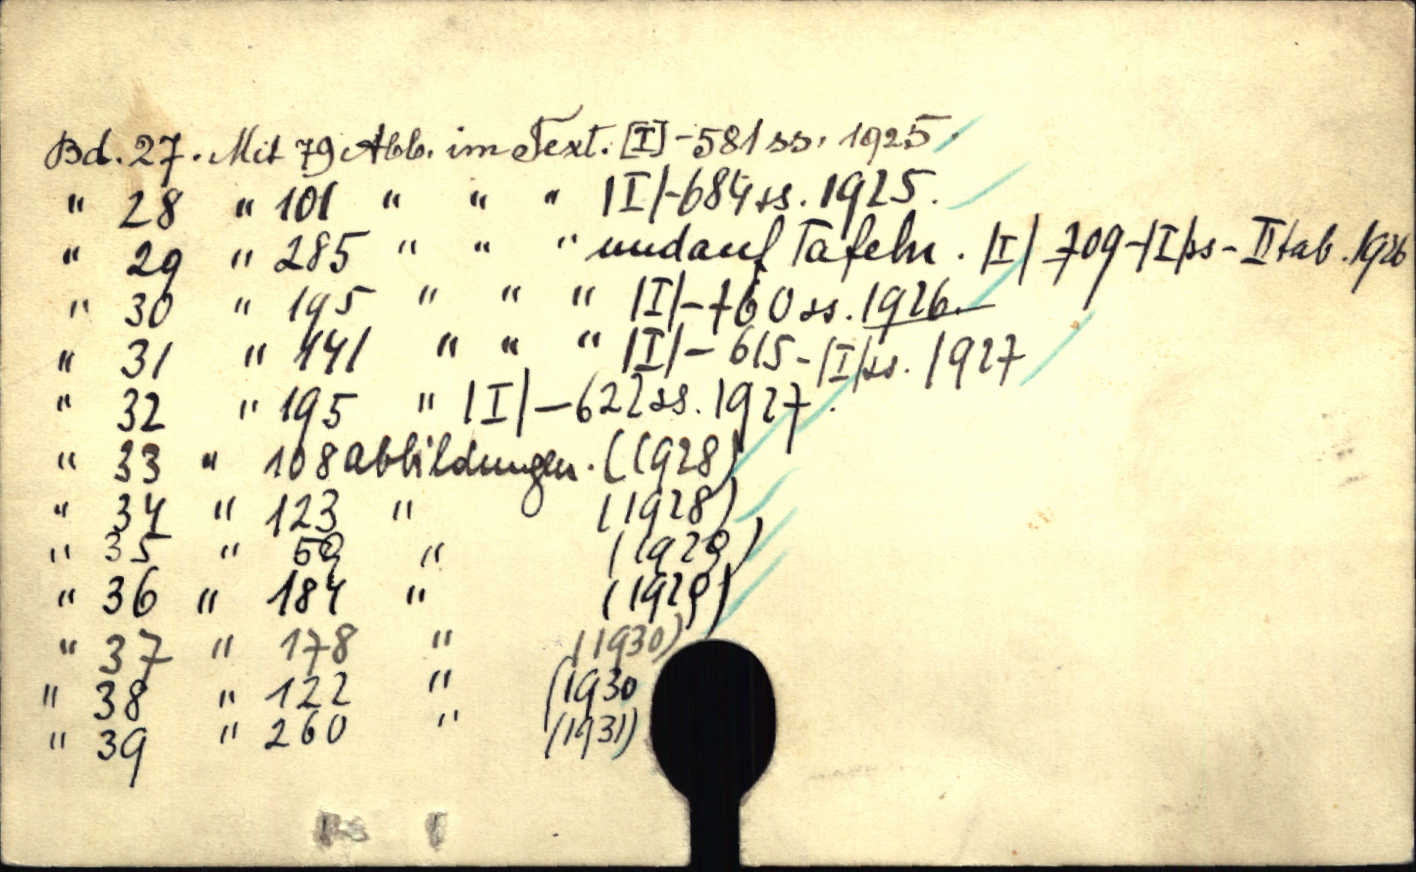 Bd. 27. Mit 79 Abb. im Text. [I] - 581 ss. 1925.
" 28 " 101 " " " |I|-684 ss. 1925.
" 29 " 285 " " " und auf Tafeln. |I| 709-|I| ss - II tab. 1926
" 30 " 195 " " " |I|-760 ss. 1926.
" 31 " 141 " " " |I|- 615-|I| ss. 1927
" 32 " 195 " |I|-622 ss. 1927.
" 33 " 108 abbildungen. (1928)
" 34 " 123 " (1928)
" 35 " 59 " (1929)
" 36 " 184 " (1929)
" 37 " 178 " (1930)
" 38 " 122 " (1930
" 39 " 260 " (1931)